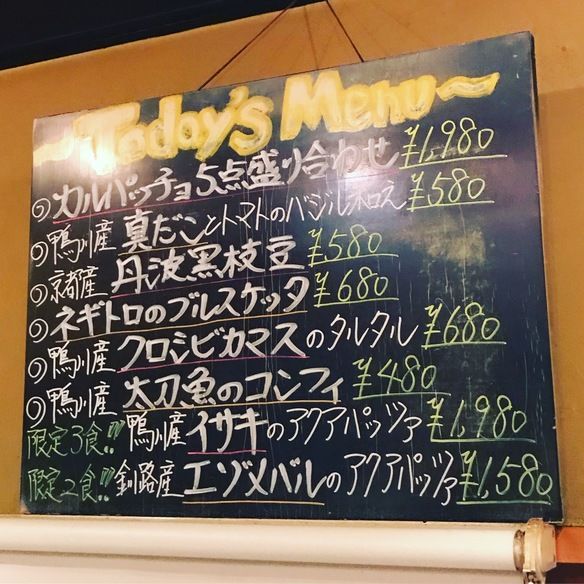 ~Today's Menu~
◎カルパッチョ5点盛り合わせ ¥1,980
◎鴨川産 真だことトマトのバジル和え ¥580
◎京都産 丹波黒枝豆 ¥580
◎ネギトロのブルスケッタ ¥680
◎鴨川産 クロシビカマスのタルタル ¥680
◎鴨川産 太刀魚のコンフィ ¥480
限定3食!! 鴨川産 イサキのアクアパッツァ ¥1,980
限定2食!! 釧路産 エゾメバルのアクアパッツァ ¥1,580